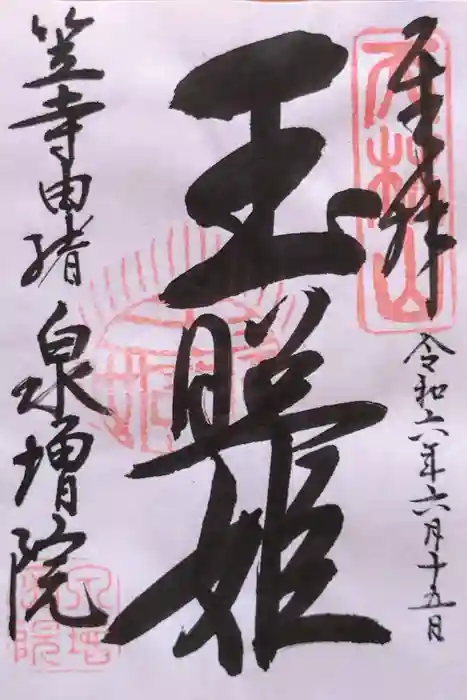 奉拝
令和六年六月十五日
玉照姫
笠寺由緒
泉増院